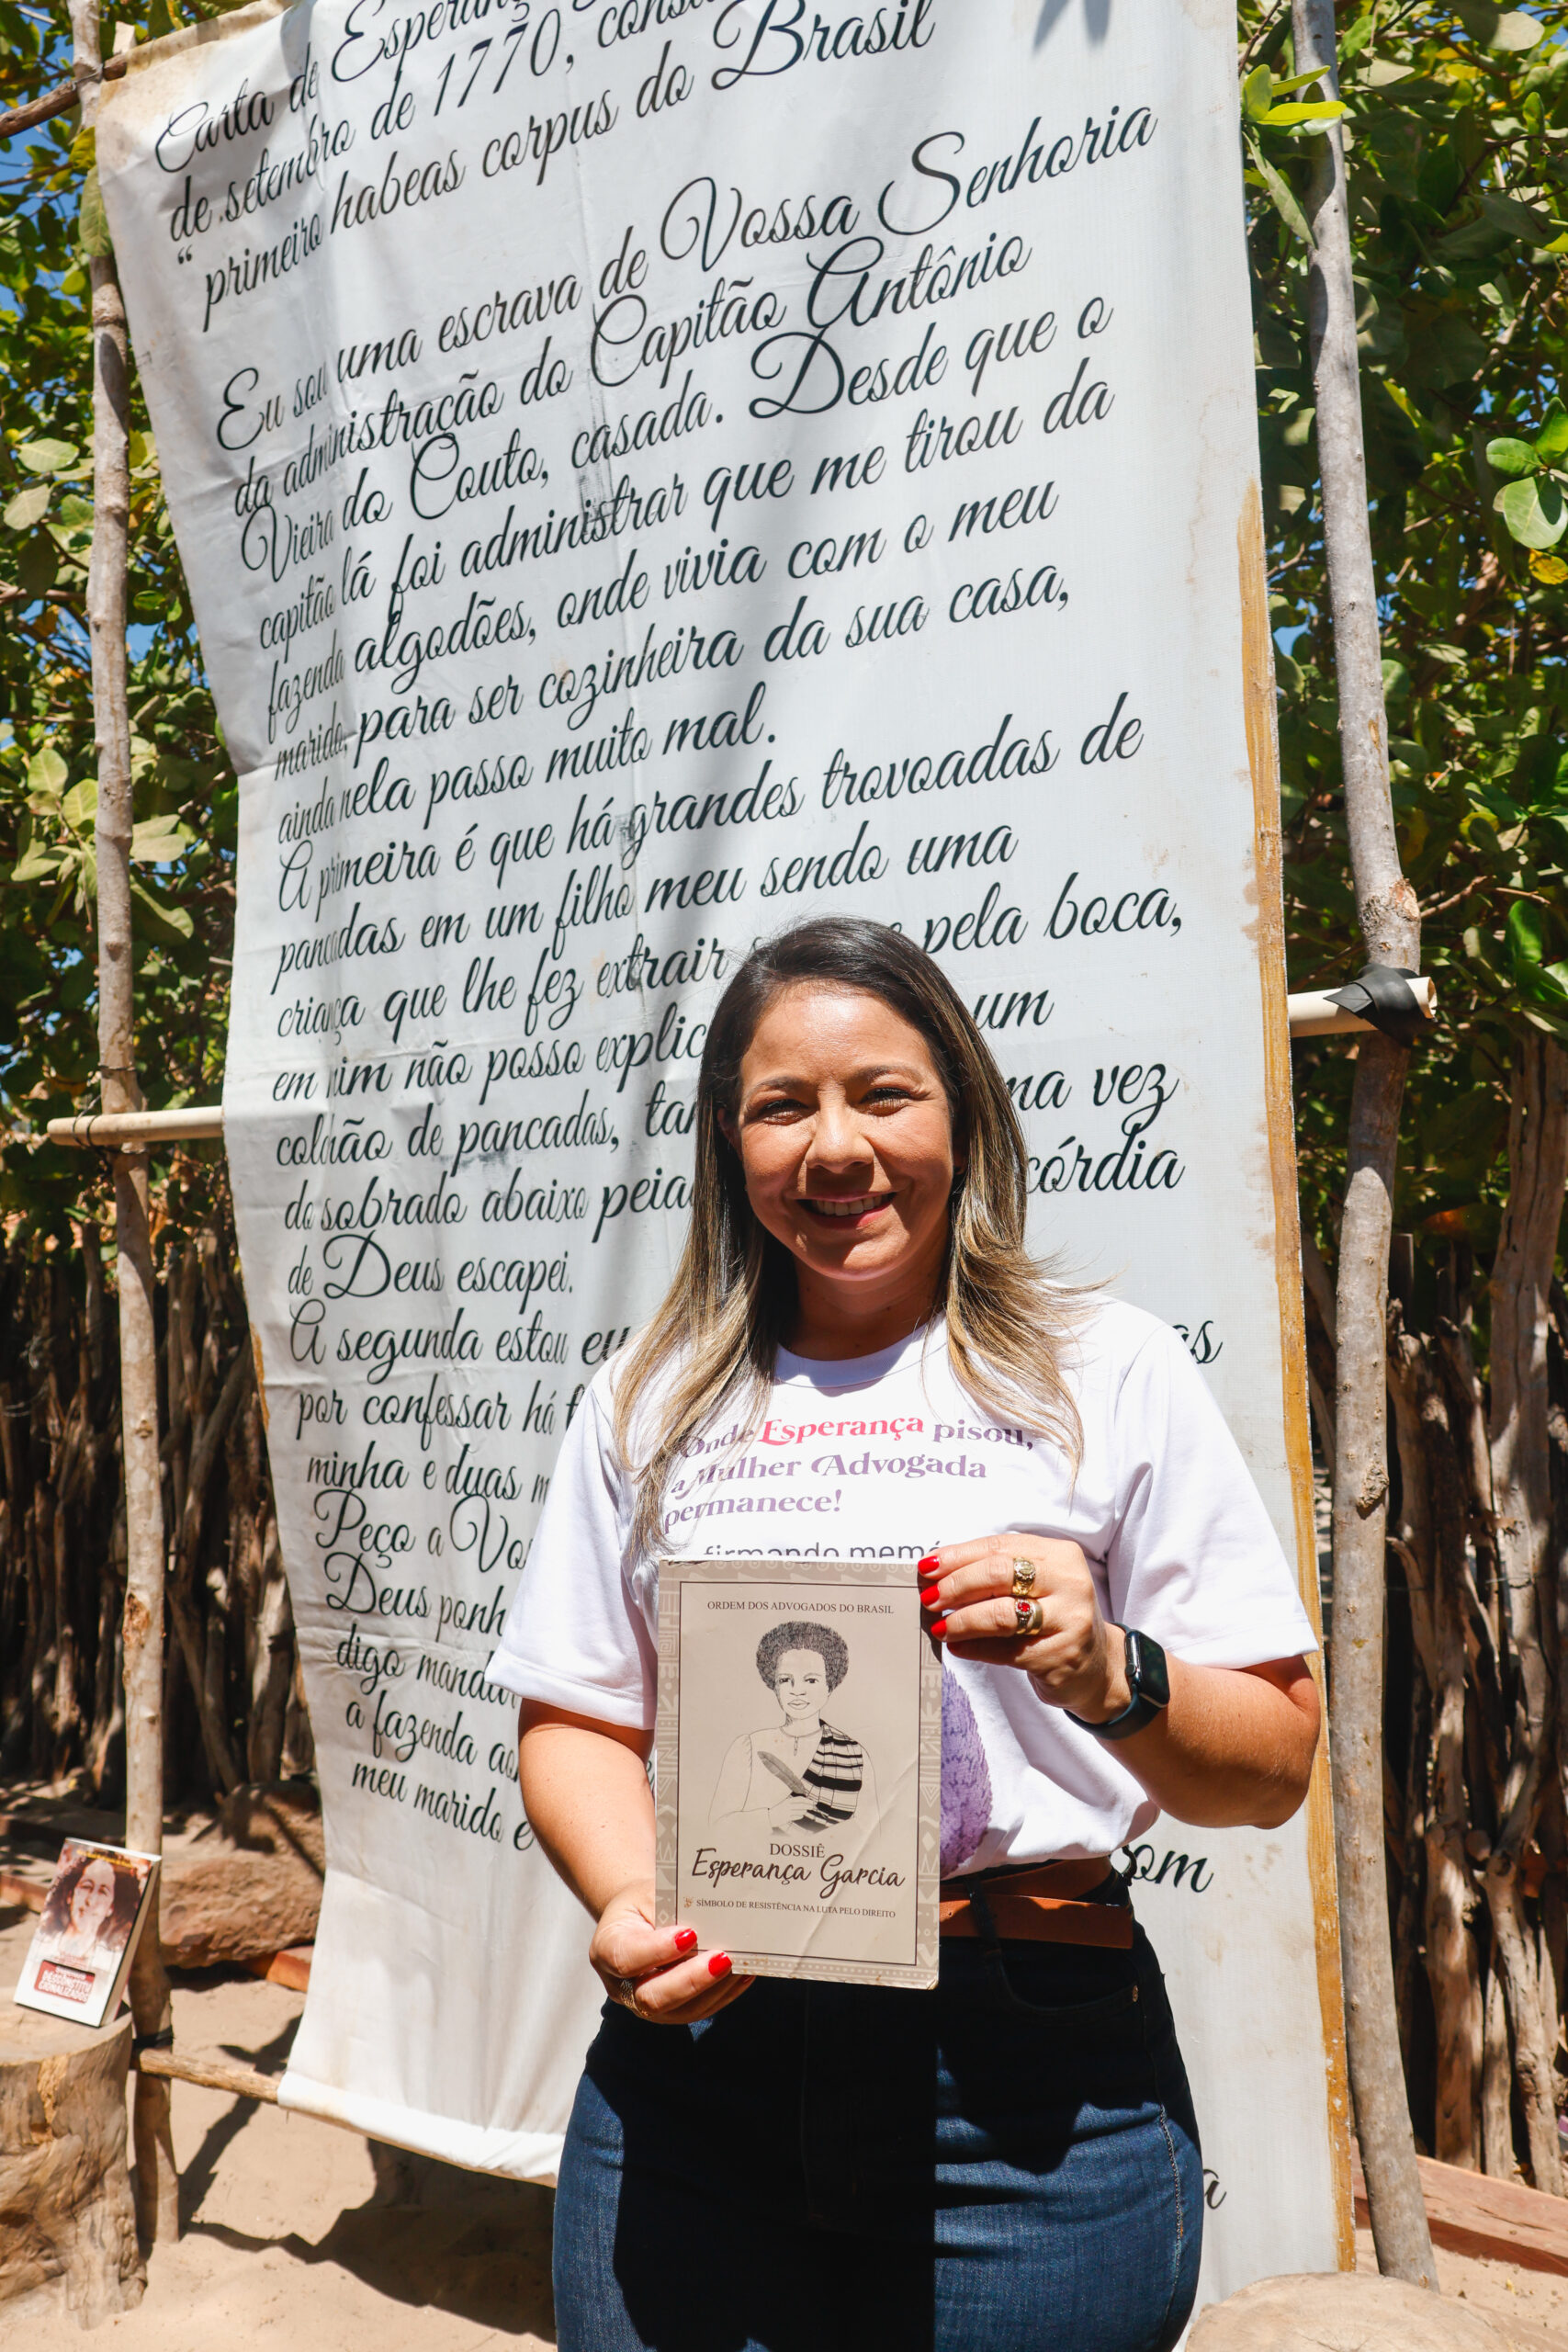 Carta de Esperanç
de setembro de 1770,
“primeiro habeas corpus do Brasil
Eu sou uma escrava de Vossa Senhoria
da administração do Capitão Antônio
Vieira do Couto, casada. Desde que o
capitão lá foi administrar que me tirou da
fazenda algodões, onde vivia com o meu
marido, para ser cozinheira da sua casa,
ainda nela passo muito mal.
A primeira é que há grandes trovoadas de
pancadas em um filho meu sendo uma
criança que lhe fez extrair pela boca,
em mim não posso explic um
colchão de pancadas, tan ma vez
do sobrado abaixo peia córdia
de Deus escapei.
A segunda estou eu as
por confessar há
minha e duas m
Peço a Vo
Deus ponh
digo mandar
a fazenda
meu marido e
om
a
Onde Esperança pisou,
a Mulher Advogada
permanece!
firmando mem
ORDEM DOS ADVOGADOS DO BRASIL
DOSSIÊ
Esperança Garcia
SÍMBOLO DE RESISTÊNCIA NA LUTA PELO DIREITO